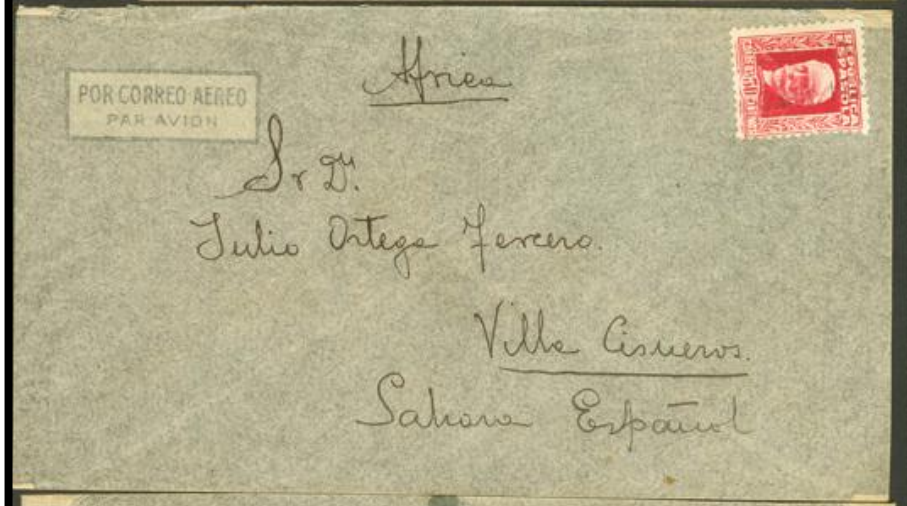 Africa
POR CORREO AEREO
PAR AVION
REPUBLICA
ESPAÑOLA
Sr Dn.
Julio Ortega Tercero.
Villa Cisneros.
Sahara Español